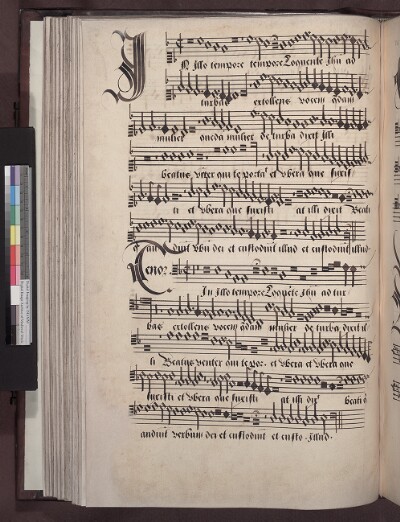 In illo tempore tempore Loquente Ihu ad
turbas extollens vocem qdam
mulier quedā mulier de turba dixit illi
beatus vēter qui te portaˢ et vbera que suxis
ti et vbera que suxisti at ille dixit Beati
qui audiūt vbū dei et custodiūt illud et custodiūt illud
Tenor. In illo tempore Loquēte Ihu ad tur
bas extollens vocem qdam mulier de turba dixit il
li Beatus venter qui te por. et vbera et vbera que
suxisti et vbera que suxisti at ille dixˢ beati q
audiunt verbum dei et custodiūt et custo. illud.